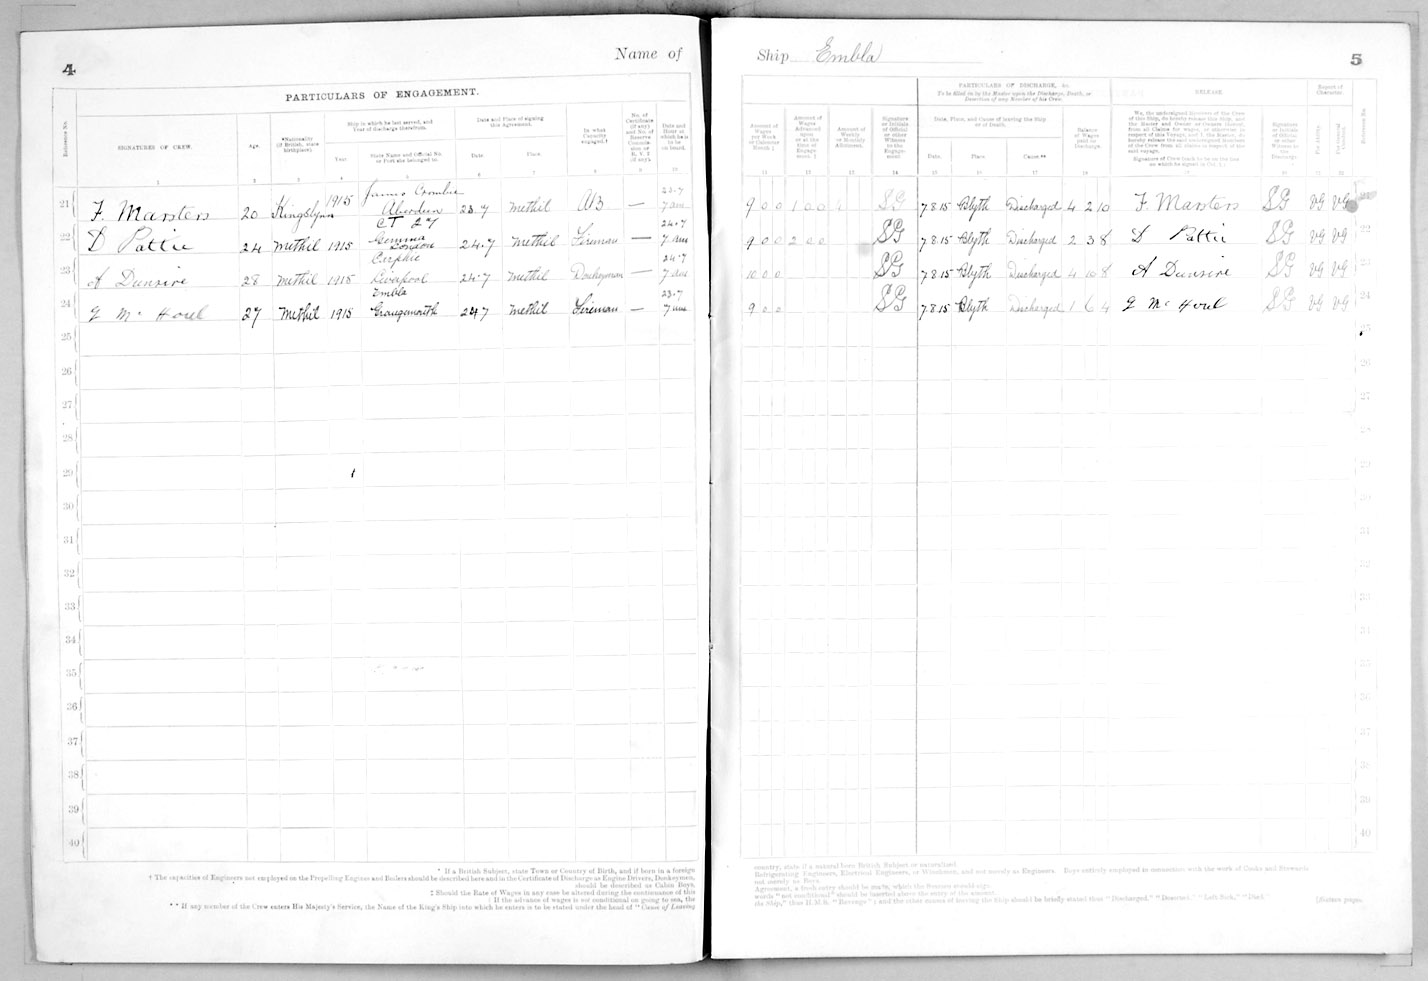 4
Name of
PARTICULARS OF ENGAGEMENT.
Reference No.
SIGNATURES OF CREW.
Age.
*Nationality (if British, state birthplace).
Ship in which he last served, and Year of discharge therefrom.
Year
State Name and Official No. or Port she belonged to.
Date and Place of signing this Agreement.
Date
Place.
In what Capacity engaged.†
No. of Certificate (if any) and No. of Reserve Commission or R.V.2 (if any).
Date and Hour at which he is to be on board.
1 2 3 4 5 6 7 8 9 10
21 F. Marsters 20 Kingslynn 1915 James Crombie Aberdeen 23.7 Methil AB 23.7 7 am
22 D Pattie 24 Methil 1915 Gemma London 24.7 Methil Fireman — 24.7 7 am
23 A Dunsire 28 Methil 1915 Liverpool 24.7 Methil Donkeyman — 24.7 7 am
24 G Mc Houl 27 Methil 1915 Embla Grangemouth 24 7 Methil Fireman — 23.7 7 am
25
26
27
28
29
30
31
32
33
34
35
36
37
38
39
40
* If a British Subject, state Town or Country of Birth, and if born in a foreign
† The capacities of Engineers not employed on the Propelling Engines and Boilers should be described here and in the Certificate of Discharge as Engine Drivers, Donkeymen,
should be described as Cabin Boys,
‡ Should the Rate of Wages in any case be altered during the continuance of this
If the advance of wages is not conditional on going to sea, the
** If any member of the Crew enters His Majesty's Service, the Name of the King's Ship into which he enters is to be stated under the head of "Cause of Leaving
Ship Embla
5
PARTICULARS OF DISCHARGE, &c.
To be filled in by the Master upon the Discharge, Death, or Desertion of any Member of his Crew.
RELEASE
Report of Character.
Amount of Wages per Week or Calendar Month ‡
Amount of Wages Advanced upon or at the time of Engagement. ‡
Amount of Weekly or Monthly Allotment.
Signature or Initials of Official or other Witness to the Engagement
Date, Place, and Cause of leaving the Ship or of Death.
Date.
Place
Cause**
Balance of Wages paid on Discharge.
We, the undersigned Members of the Crew of this Ship, do hereby release this Ship, and the Master and Owner or Owners thereof, from all Claims for wages, or otherwise in respect of this Voyage, and I, the Master, do hereby release the said undersigned Members of the Crew from all claims in respect of the said voyage.
Signature of Crew (each to be on the line on which he signed in Col. 1.)
Signature or Initials of Official or other Witness to the Discharge
For Ability.
For General Conduct.
Reference No.
11 12 13 14 15 16 17 18 19 20 21 22
9 0 0 1 0 0 SG 7 8 15 Blyth Discharged 4 2 10 F. Marsters SG VG VG
9 0 0 2 0 0 SG 7 8 15 Blyth Discharged 2 3 8 D Pattie SG VG VG 22
10 0 0 SG 7 8 15 Blyth Discharged 4 10 8 A Dunsire SG VG VG 23
9 0 0 SG 7 8 15 Blyth Discharged 1 6 4 G Mc Houl SG VG VG 24
25
26
27
28
29
30
31
32
33
34
35
36
37
38
39
40
country, state if a natural-born British Subject or naturalized.
Refrigerating Engineers, Electrical Engineers, or Winchmen, and not merely as Engineers. Boys entirely employed in connection with the work of Cooks and Stewards
not merely as Boys.
Agreement, a fresh entry should be made, which the Seamen should sign.
words "not conditional" should be inserted above the entry of the amount.
the Ship," thus H.M.S. "Revenge"; and the other causes of leaving the Ship should be briefly stated thus "Discharged," "Deserted," "Left Sick," "Died."